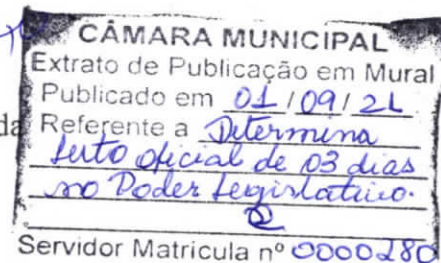 CÂMARA MUNICIPAL
Extrato de Publicação em Mural
Publicado em 01/09/21
da Referente a Determina
luto oficial de 03 dias
no Poder Legislativo.
Servidor Matricula nº 0000280